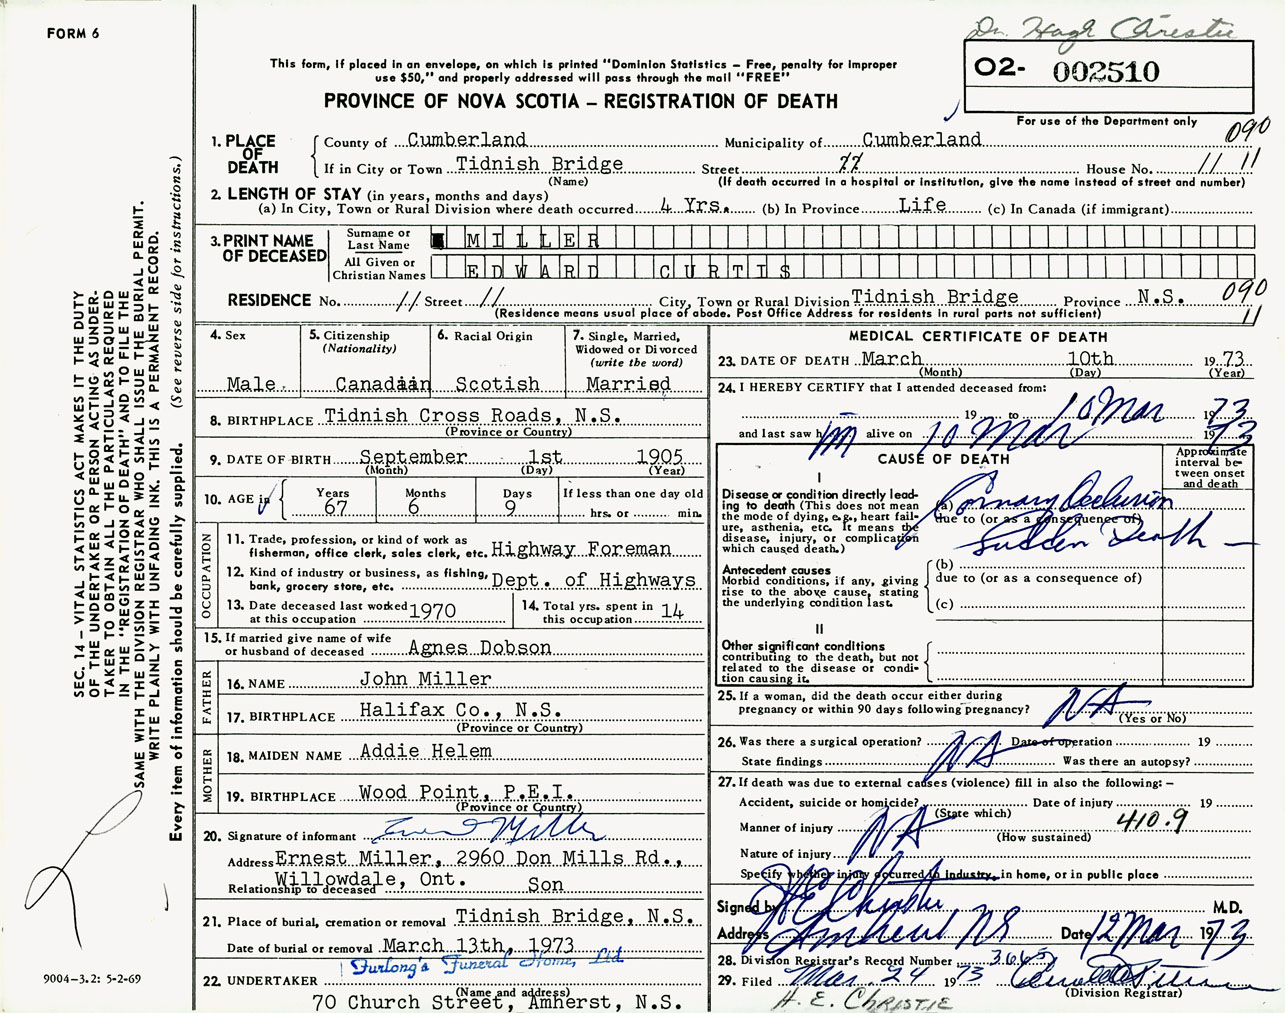 FORM 6
Dr. Hugh Christie
This form, if placed in an envelope, on which is printed "Dominion Statistics – Free, penalty for improper
use $50," and properly addressed will pass through the mail "FREE"
O2- 002510
For use of the Department only
PROVINCE OF NOVA SCOTIA – REGISTRATION OF DEATH
090
11
1. PLACE OF DEATH
County of Cumberland Municipality of Cumberland
If in City or Town Tidnish Bridge Street " House No. "
(Name) (If death occurred in a hospital or institution, give the name instead of street and number)
2. LENGTH OF STAY (in years, months and days)
(a) In City, Town or Rural Division where death occurred 4 Yrs. (b) In Province Life (c) In Canada (if immigrant)
3. PRINT NAME OF DECEASED
Surname or Last Name MILLER
All Given or Christian Names EDWARD CURTIS
RESIDENCE No. // Street // City, Town or Rural Division Tidnish Bridge Province N.S. 090
(Residence means usual place of abode. Post Office Address for residents in rural parts not sufficient) 11
4. Sex
Male.
5. Citizenship
(Nationality)
Canadian
6. Racial Origin
Scotish
7. Single, Married,
Widowed or Divorced
(write the word)
Married
8. BIRTHPLACE Tidnish Cross Roads, N.S.
(Province or Country)
9. DATE OF BIRTH September 1st 1905
(Month) (Day) (Year)
10. AGE in
Years Months Days If less than one day old
67 6 9 hrs. or min.
OCCUPATION
11. Trade, profession, or kind of work as
fisherman, office clerk, sales clerk, etc. Highway Foreman
12. Kind of industry or business, as fishing,
bank, grocery store, etc. Dept. of Highways
13. Date deceased last worked
at this occupation 1970
14. Total yrs. spent in
this occupation 14
15. If married give name of wife
or husband of deceased Agnes Dobson
FATHER
16. NAME John Miller
17. BIRTHPLACE Halifax Co., N.S.
(Province or Country)
MOTHER
18. MAIDEN NAME Addie Helem
19. BIRTHPLACE Wood Point, P.E.I.
(Province or Country)
20. Signature of informant Miller
Address Ernest Miller, 2960 Don Mills Rd.,
Willowdale, Ont.
Relationship to deceased Son
21. Place of burial, cremation or removal Tidnish Bridge, N.S.
Date of burial or removal March 13th, 1973
Furlong's Funeral Home, Ltd
22. UNDERTAKER
(Name and address)
70 Church Street, Amherst, N.S.
MEDICAL CERTIFICATE OF DEATH
23. DATE OF DEATH March 10th 1973
(Month) (Day) (Year)
24. I HEREBY CERTIFY that I attended deceased from:
19 to 10 Mar 1973
and last saw him alive on 10 Mar 1973
CAUSE OF DEATH
Approximate
interval be-
tween onset
and death
I
Disease or condition directly lead-
ing to death (This does not mean
the mode of dying, e.g., heart fail-
ure, asthenia, etc. It means the
disease, injury, or complication
which caused death.)
(a) Coronary Occlusion
due to (or as a consequence of)
Sudden Death —
Antecedent causes
Morbid conditions, if any, giving
rise to the above cause, stating
the underlying condition last.
(b)
due to (or as a consequence of)
(c)
II
Other significant conditions
contributing to the death, but not
related to the disease or condi-
tion causing it.
25. If a woman, did the death occur either during
pregnancy or within 90 days following pregnancy? NA
(Yes or No)
26. Was there a surgical operation? NA Date of operation 19
State findings Was there an autopsy?
27. If death was due to external causes (violence) fill in also the following: –
Accident, suicide or homicide? Date of injury 19
(State which) 410.9
Manner of injury NA
(How sustained)
Nature of injury
Specify whether injury occurred in industry, in home, or in public place
Signed by H E Christie M.D.
Address Amherst NS Date 12 Mar 1973
28. Division Registrar's Record Number 3665
29. Filed Mar. 24 1973
(Division Registrar)
H. E. CHRISTIE
SEC. 14 – VITAL STATISTICS ACT MAKES IT THE DUTY
OF THE UNDERTAKER OR PERSON ACTING AS UNDER-
TAKER TO OBTAIN ALL THE PARTICULARS REQUIRED
IN THE "REGISTRATION OF DEATH" AND TO FILE THE
SAME WITH THE DIVISION REGISTRAR WHO SHALL ISSUE THE BURIAL PERMIT.
WRITE PLAINLY WITH UNFADING INK. THIS IS A PERMANENT RECORD.
Every item of information should be carefully supplied. (See reverse side for instructions.)
9004–3.2: 5-2-69